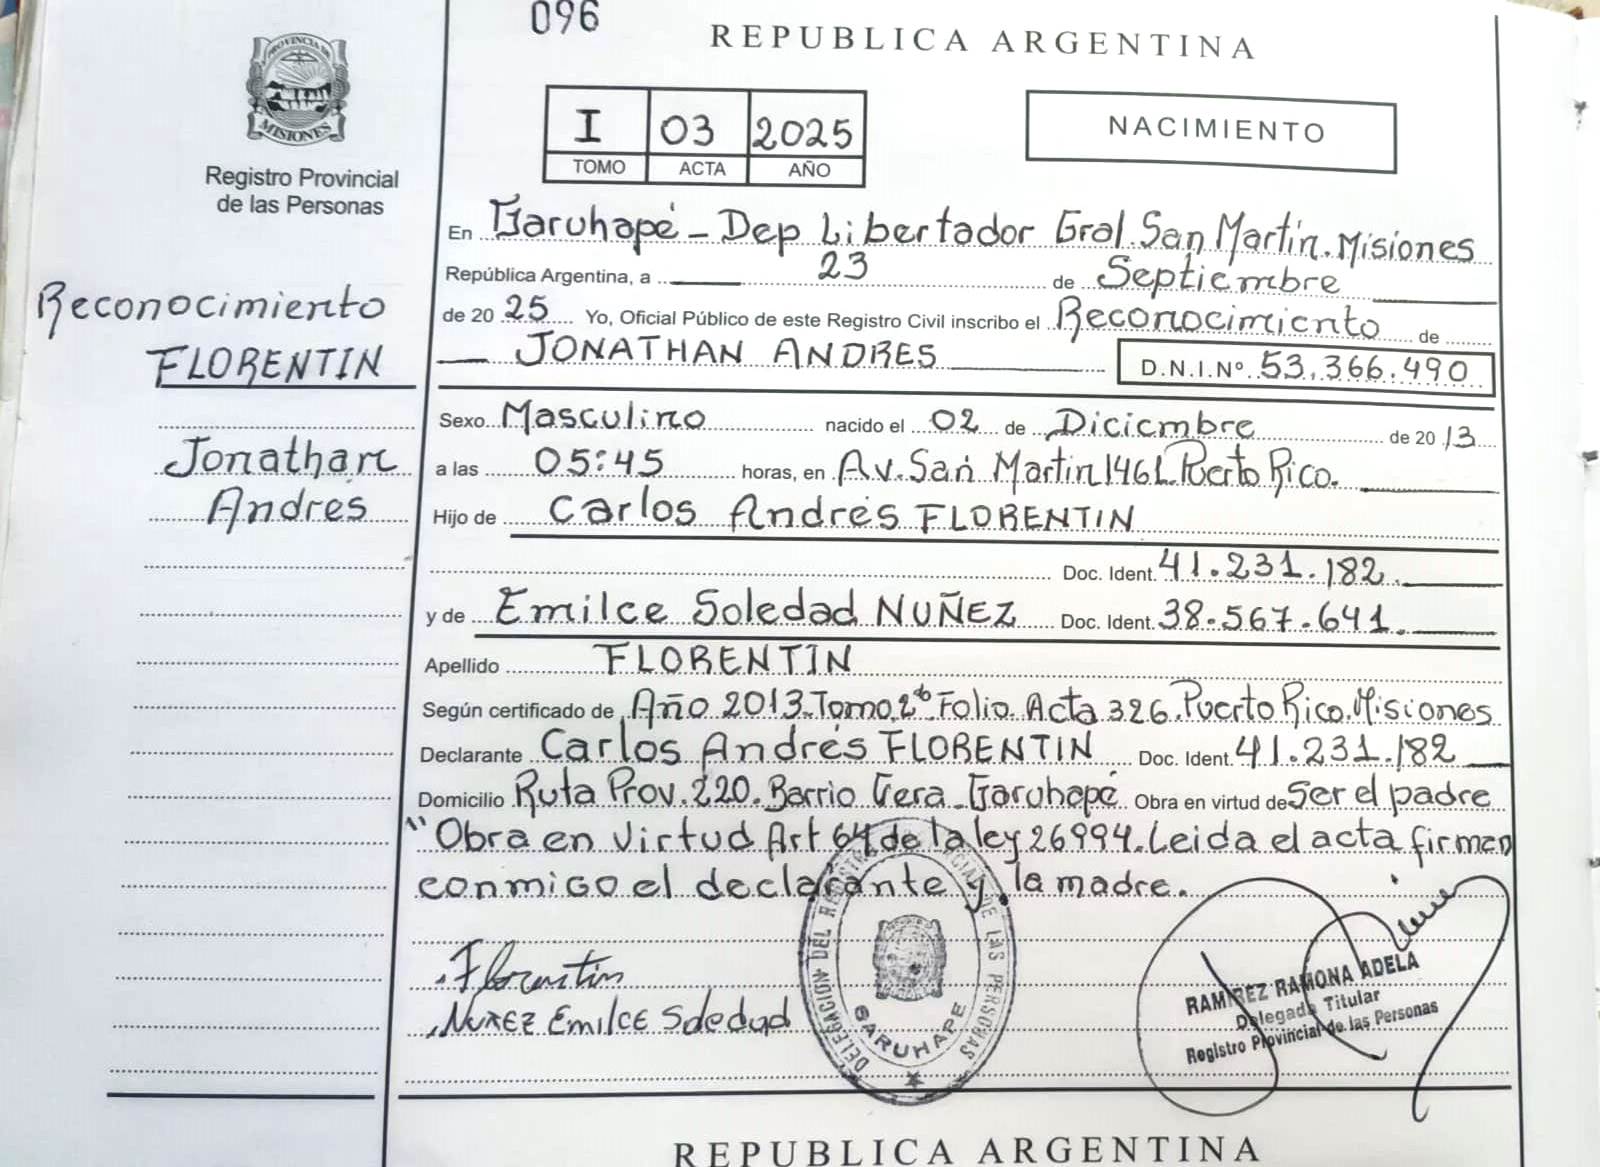 096
REPUBLICA ARGENTINA
PROVINCIA DE
MISIONES
Registro Provincial
de las Personas
I 03 2025
TOMO ACTA AÑO
NACIMIENTO
En Garuhapé - Dep Libertador Gral. San Martín. Misiones
República Argentina, a 23 de Septiembre
de 20 25 Yo, Oficial Público de este Registro Civil inscribo el Reconocimiento de
JONATHAN ANDRES D.N.I.Nº 53.366.490
Reconocimiento
FLORENTIN
Jonathan
Andres
Sexo Masculino nacido el 02 de Diciembre de 2013
a las 05:45 horas, en Av. San Martin 1461. Puerto Rico.
Hijo de Carlos Andrés FLORENTIN
Doc. Ident. 41.231.182.
y de Emilce Soledad NUÑEZ Doc. Ident. 38.567.641.
Apellido FLORENTIN
Según certificado de Año 2013. Tomo 2º Folio. Acta 326. Puerto Rico. Misiones
Declarante Carlos Andrés FLORENTIN Doc. Ident. 41.231.182
Domicilio Ruta Prov. 220. Barrio Vera - Garuhapé Obra en virtud de Ser el padre
"Obra en virtud Art 64 de la ley 26994. Leida el acta firman
conmigo el declarante y la madre.
Florentin
Nuñez Emilce Soledad
DELEGACION DEL REGISTRO PROVINCIAL DE LAS PERSONAS
GARUHAPE
RAMIREZ RAMONA ADELA
Delegada Titular
Registro Provincial de las Personas
REPUBLICA ARGENTINA